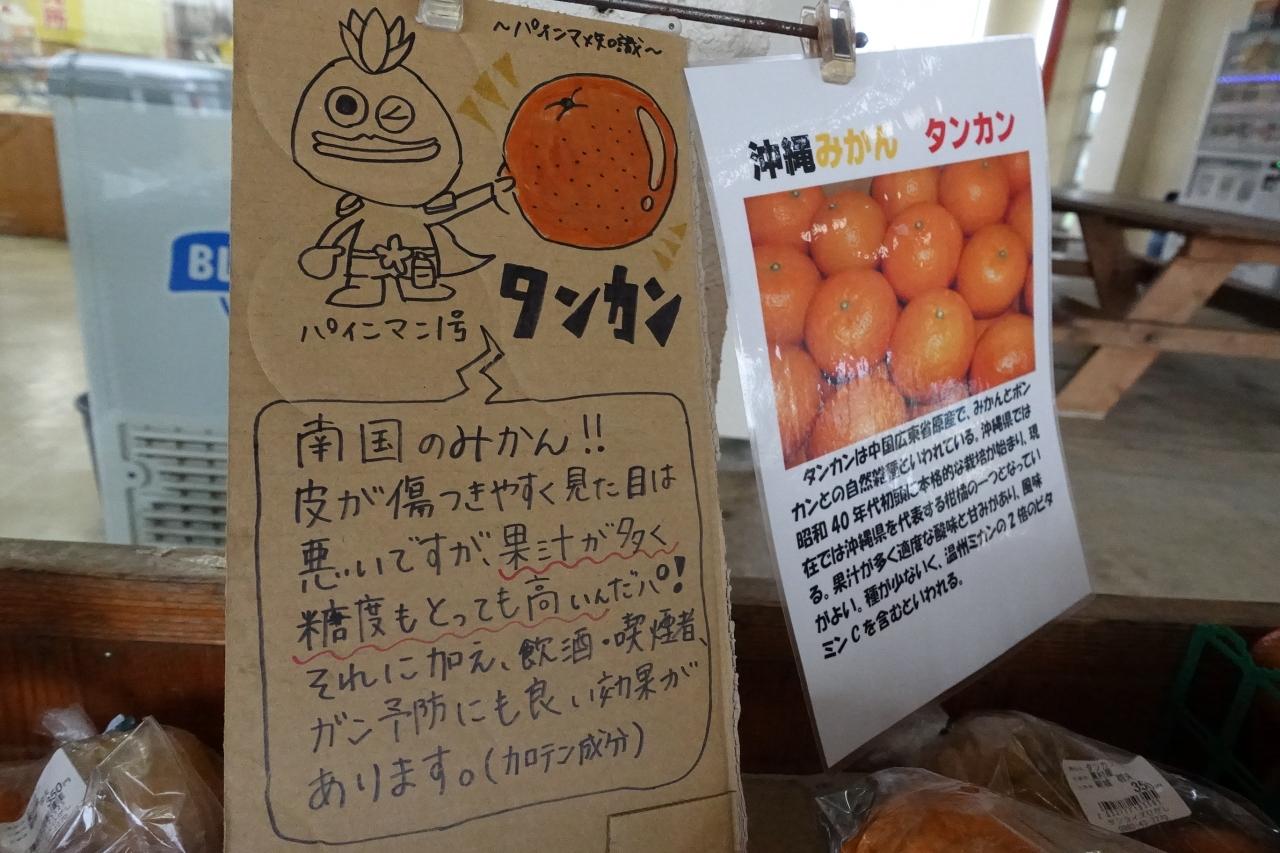 ～パインマメ知識～
タンカン
パインマン1号
南国のみかん!!
皮が傷つきやすく見た目は
悪いですが、果汁が多く
糖度もとっても高いんだパ!
それに加え、飲酒・喫煙者、
ガン予防にも良い効果が
あります。(カロテン成分)
沖縄みかん タンカン
タンカンは中国広東省原産で、みかんとポン
カンとの自然雑種といわれている。沖縄県では
昭和40年代初頭に本格的な栽培が始まり、現
在では沖縄県を代表する柑橘の一つとなってい
る。果汁が多く適度な酸味と甘みがあり、風味
がよい。種が少ないく、温州ミカンの2倍のビタ
ミンCを含むといわれる。
BL
350
350